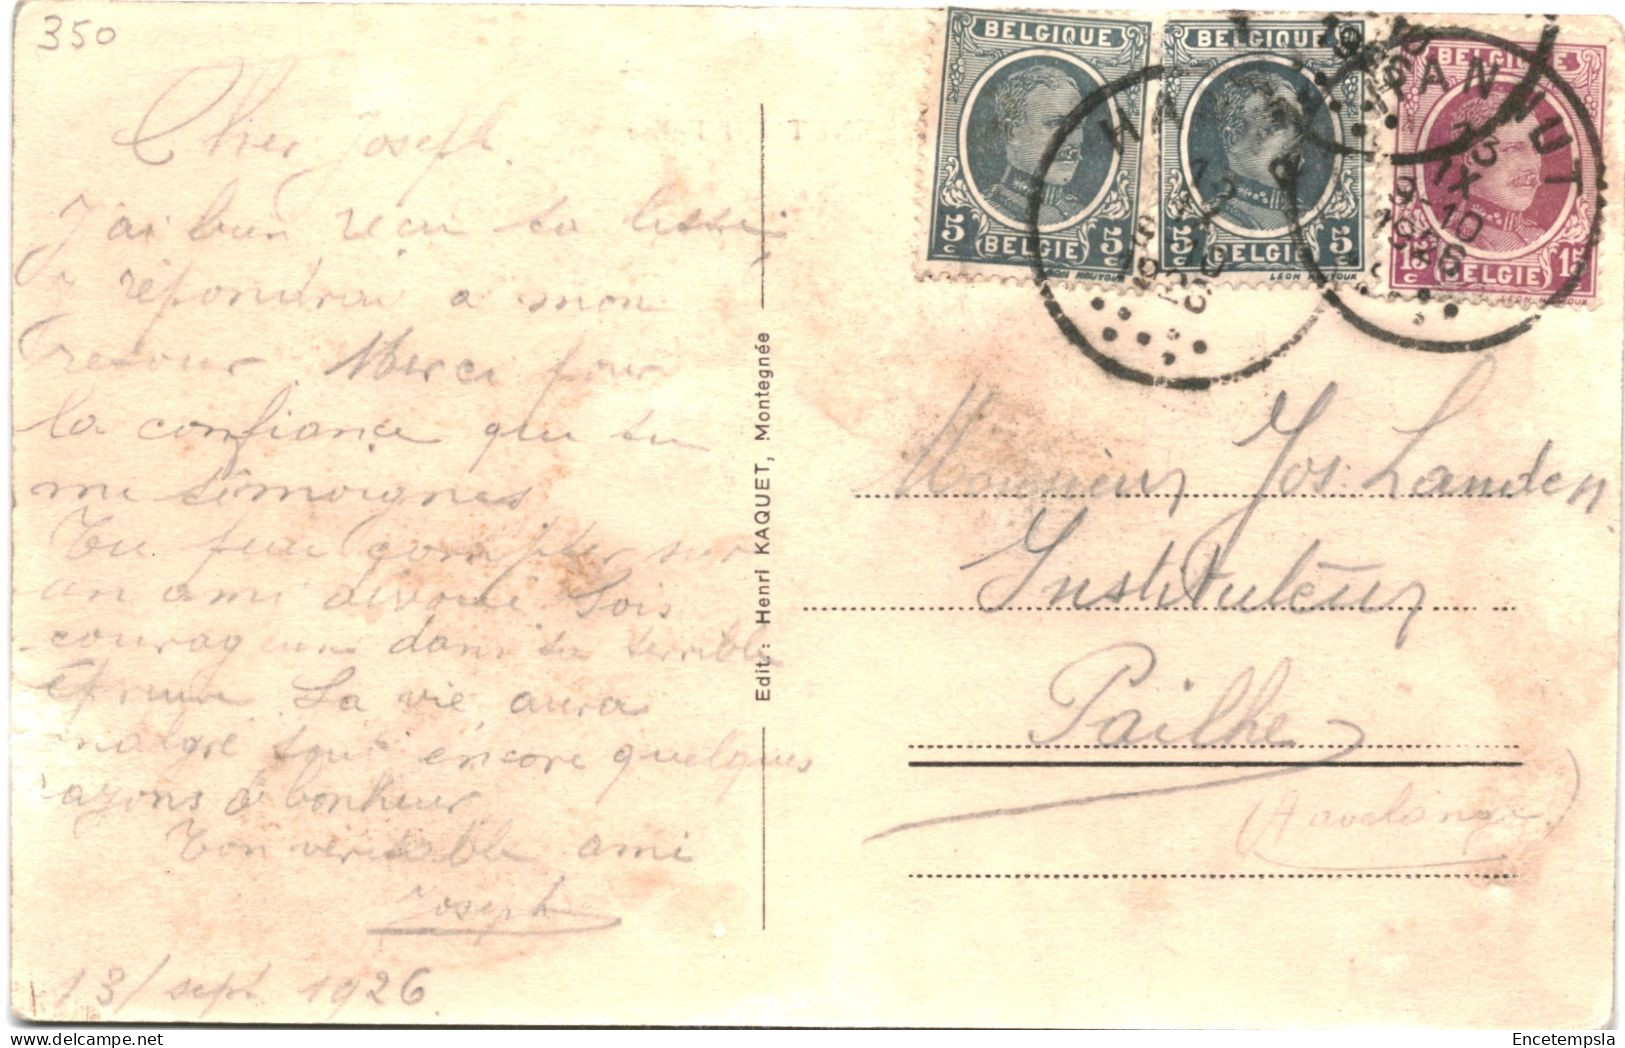 350
Cher Joseph
J'ai bien reçu ta lettre
J'y répondrai à mon
retour Merci pour
la confiance que tu
me témoignes
Tu peux compter sur
un ami dévoué Sois
courageux dans ta terrible
épreuve La vie aura
malgré tout encore quelques
rayons de bonheur
Ton véritable ami
Joseph
13/sept 1926
Edit.: Henri KAQUET, Montegnée
BELGIQUE
5c 5c
BELGIE
BELGIQUE
5c 5c
BELGIE
LEON HOUYOUX
BELGIQUE
15c 15c
BELGIE
LEON HOUYOUX
HANNUT
13 IX
9-10
1926
Monsieur Jos. Landen
Instituteur
Pailhe
(Havelange)
Encetempsla